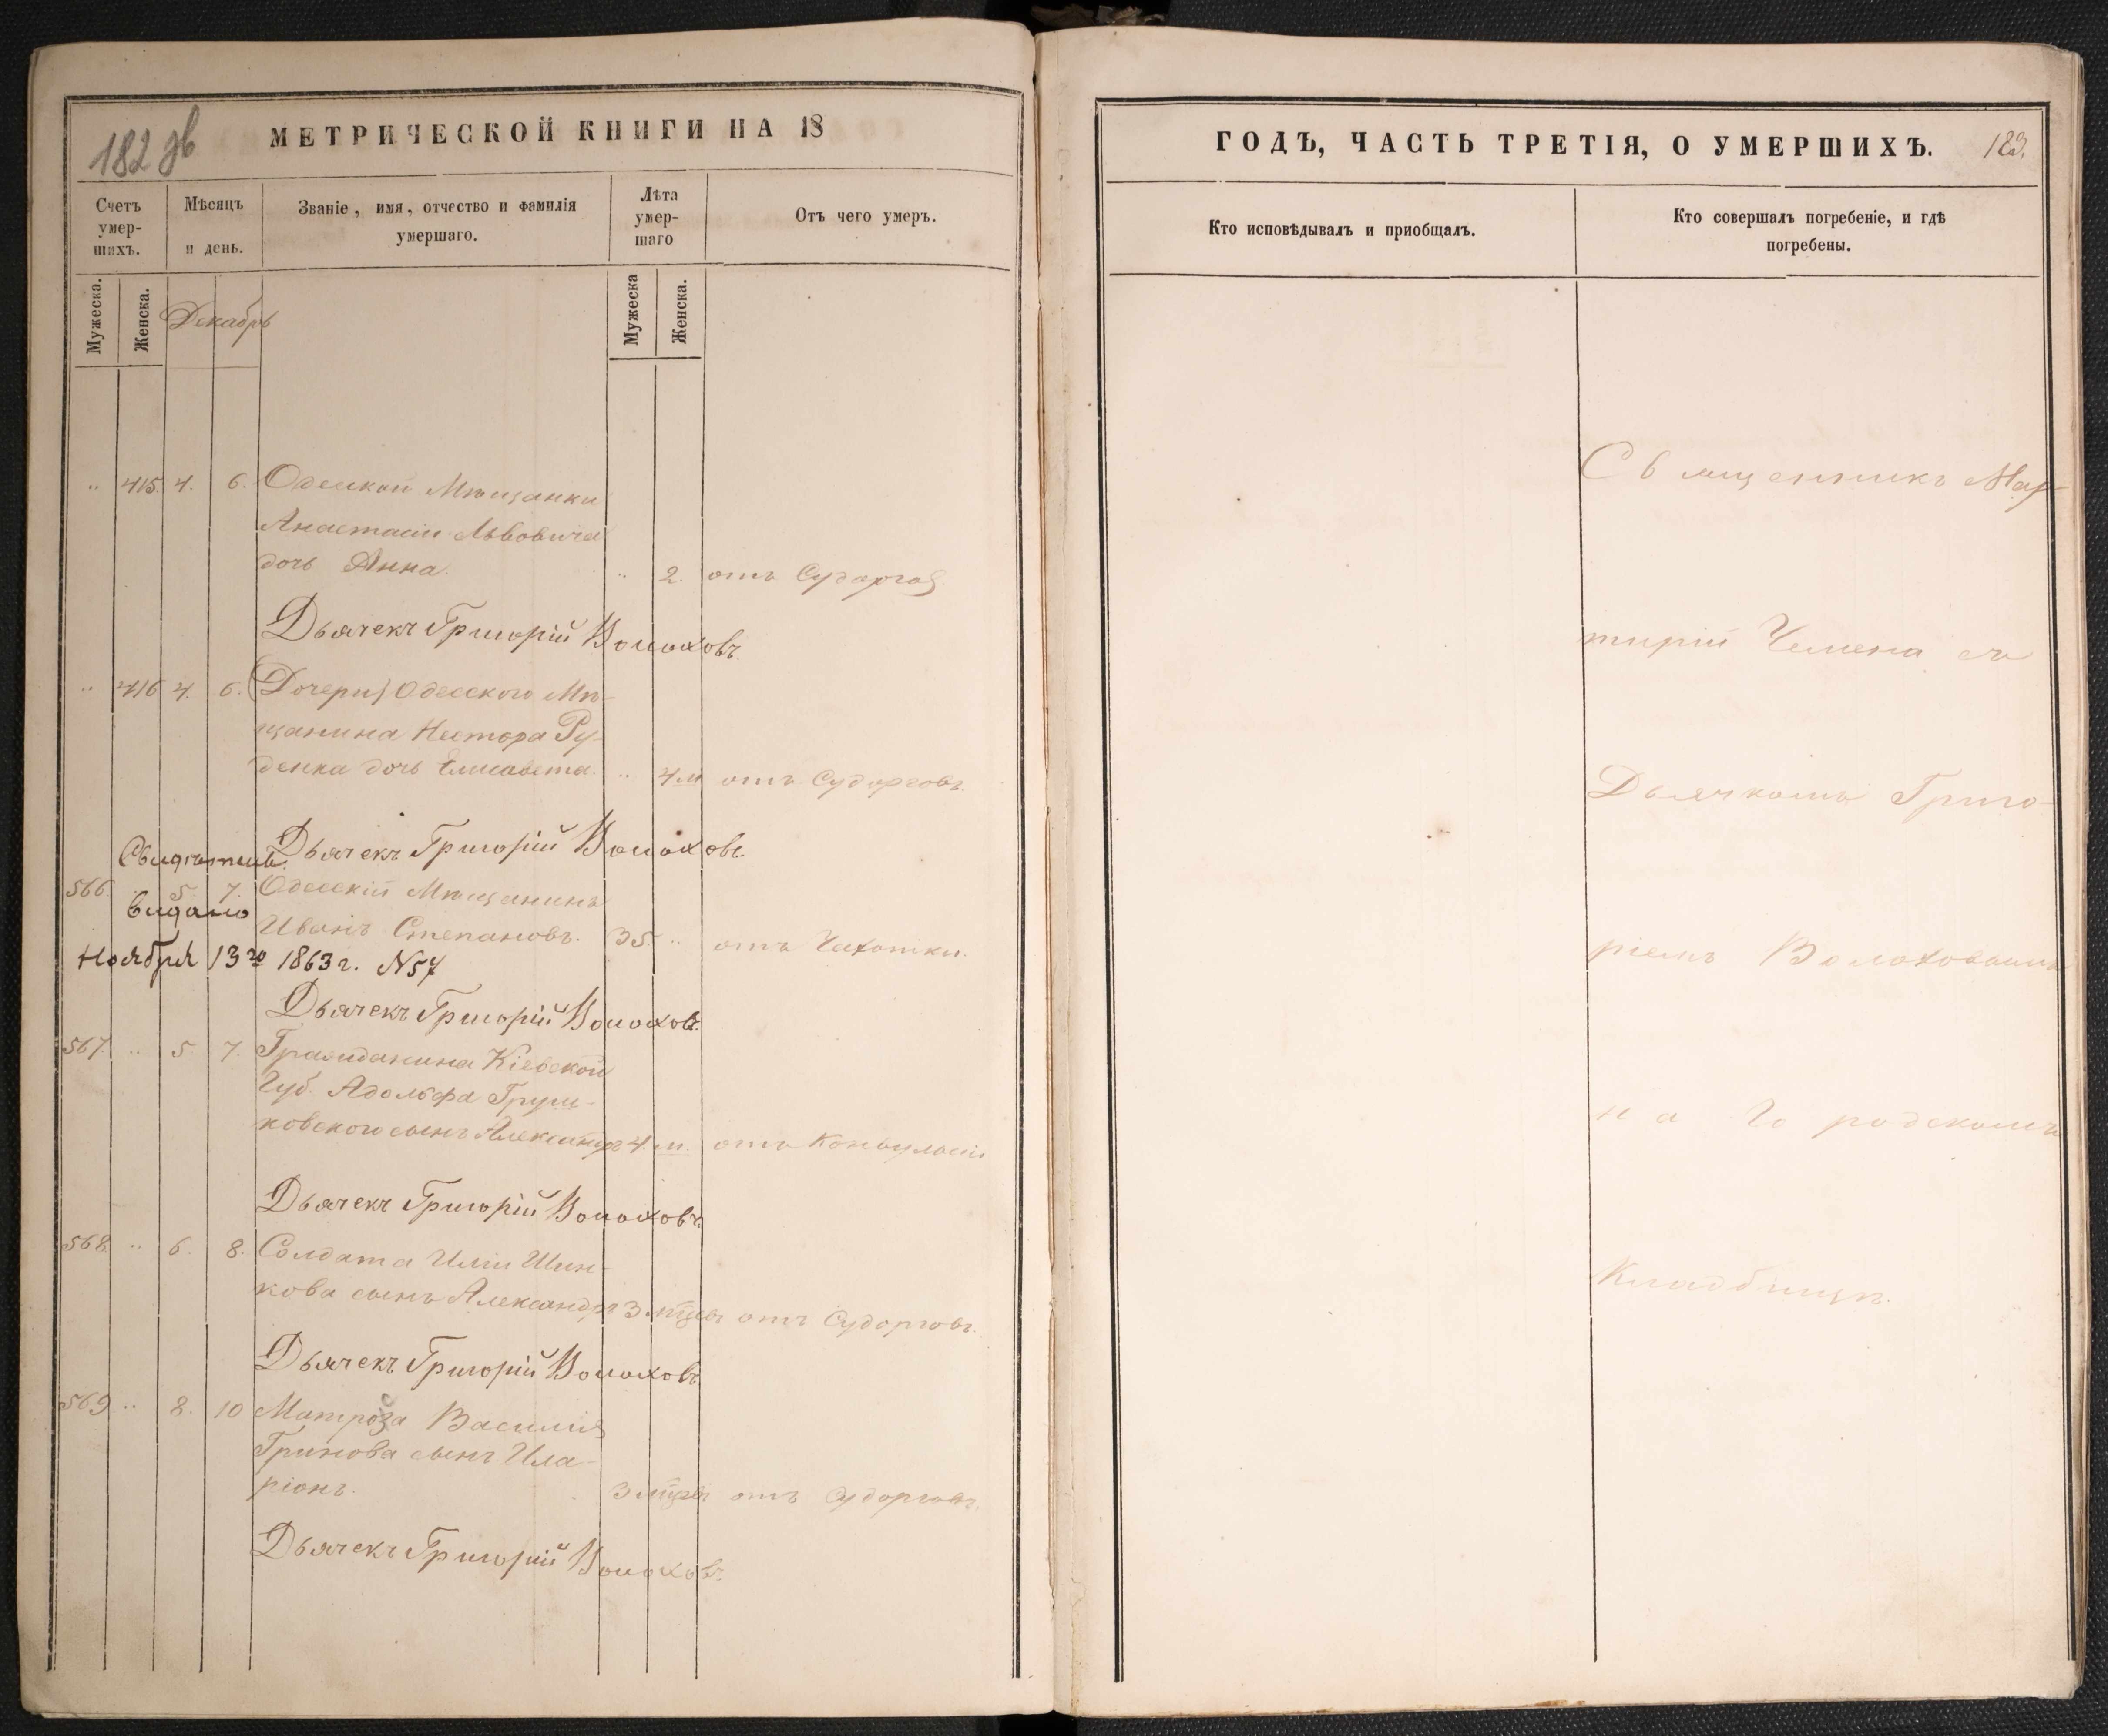 182 зв
МЕТРИЧЕСКОЙ КНИГИ НА 18
Счетъ умер-шихъ.
Мѣсяцъ и день.
Званіе, имя, отчество и фамилія умершаго.
Лѣта умер-шаго
Отъ чего умеръ.
Мужеска. Женска.
Декабрь
Мужеска Женска.
„ 415. 4. 6. Одесской Мѣщанки
Анастасіи Львовича
дочь Анна. „ 2. отъ Судорга
Дьячекъ Григорій Волоховъ.
„ 416 4. 6. (Дочери) Одесского Мѣ-
щанина Нестора Ру-
денка дочь Елисавета. „ 4 м отъ Судорговъ.
Дьячекъ Григорій Волоховъ.
Свидѣтель.
566. „ 5. 7. Одесскій Мѣщанинъ
видано
Иванъ Степановъ. 35. „ отъ Чахотки.
Ноября 13го 1863 г. N 57
Дьячекъ Григорій Волоховъ.
567. „ 5 7. Гражданина Кіевской
Губ. Адольфа Груш-
ковского сынъ Александръ 4. м. отъ Конвульсіи
Дьячекъ Григорій Волоховъ.
568. „ 6. 8. Солдата Иліи Шин-
кова сынъ Александръ 3 мѣс. отъ Судорговъ.
Дьячекъ Григорій Волоховъ
569 „ 8. 10 Матроса Василія
Гринова сынъ Ила-
ріонъ. 3 мѣс. отъ Судорговъ.
Дьячекъ Григорій Волоховъ.
ГОДЪ, ЧАСТЬ ТРЕТІЯ, О УМЕРШИХЪ. 183.
Кто исповѣдывалъ и пріобщалъ.
Кто совершалъ погребеніе, и гдѣ погребены.
Священникъ Мар-
тирій Чемена съ
Дьячкомъ Григо-
ріемъ Волоховымъ
на Городскомъ
Кладбищѣ.